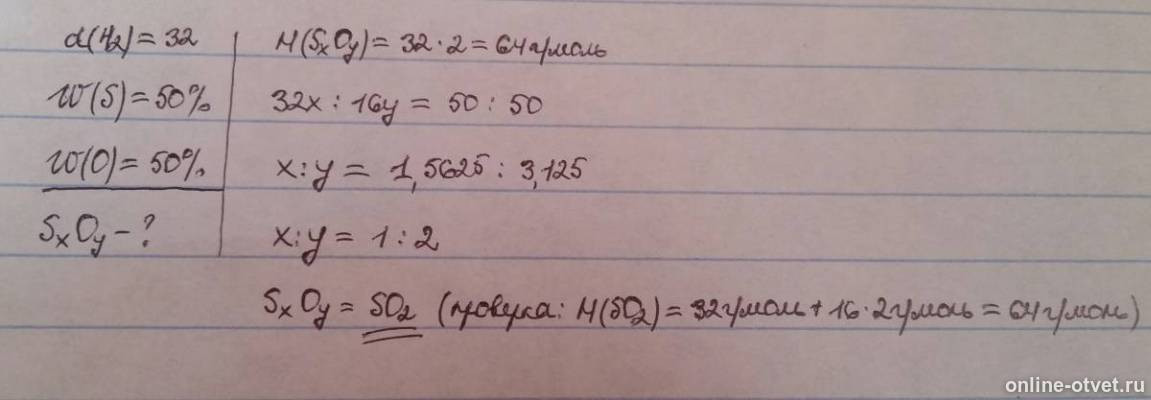 d(H₂) = 32
W(S) = 50%
W(O) = 50%
SₓOᵧ - ?
M(SₓOᵧ) = 32 · 2 = 64 г/моль
32x : 16y = 50 : 50
x : y = 1,5625 : 3,125
x : y = 1 : 2
SₓOᵧ = SO₂ (проверка: M(SO₂) = 32 г/моль + 16 · 2 г/моль = 64 г/моль)
online-otvet.ru